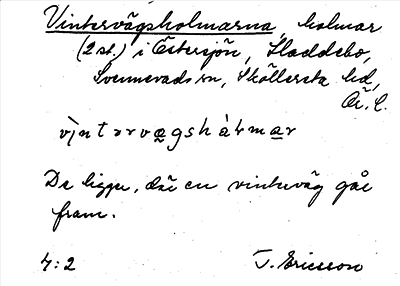 Vintervägsholmarna, holmar
(2 st.) i Östersjön, Haddebo,
Svennevads sn, Sköllersta hd,
Ör. l.
vìntərvægshàlmar
De ligga, där en vinterväg går
fram.
4:2 J. Ericsson